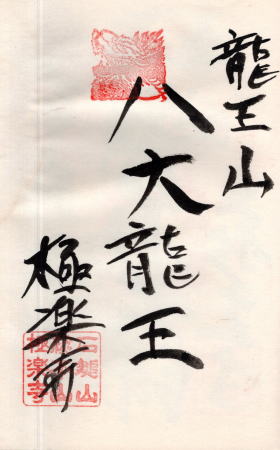 龍王山
八大龍王
極楽寺
石鎚山
極楽寺